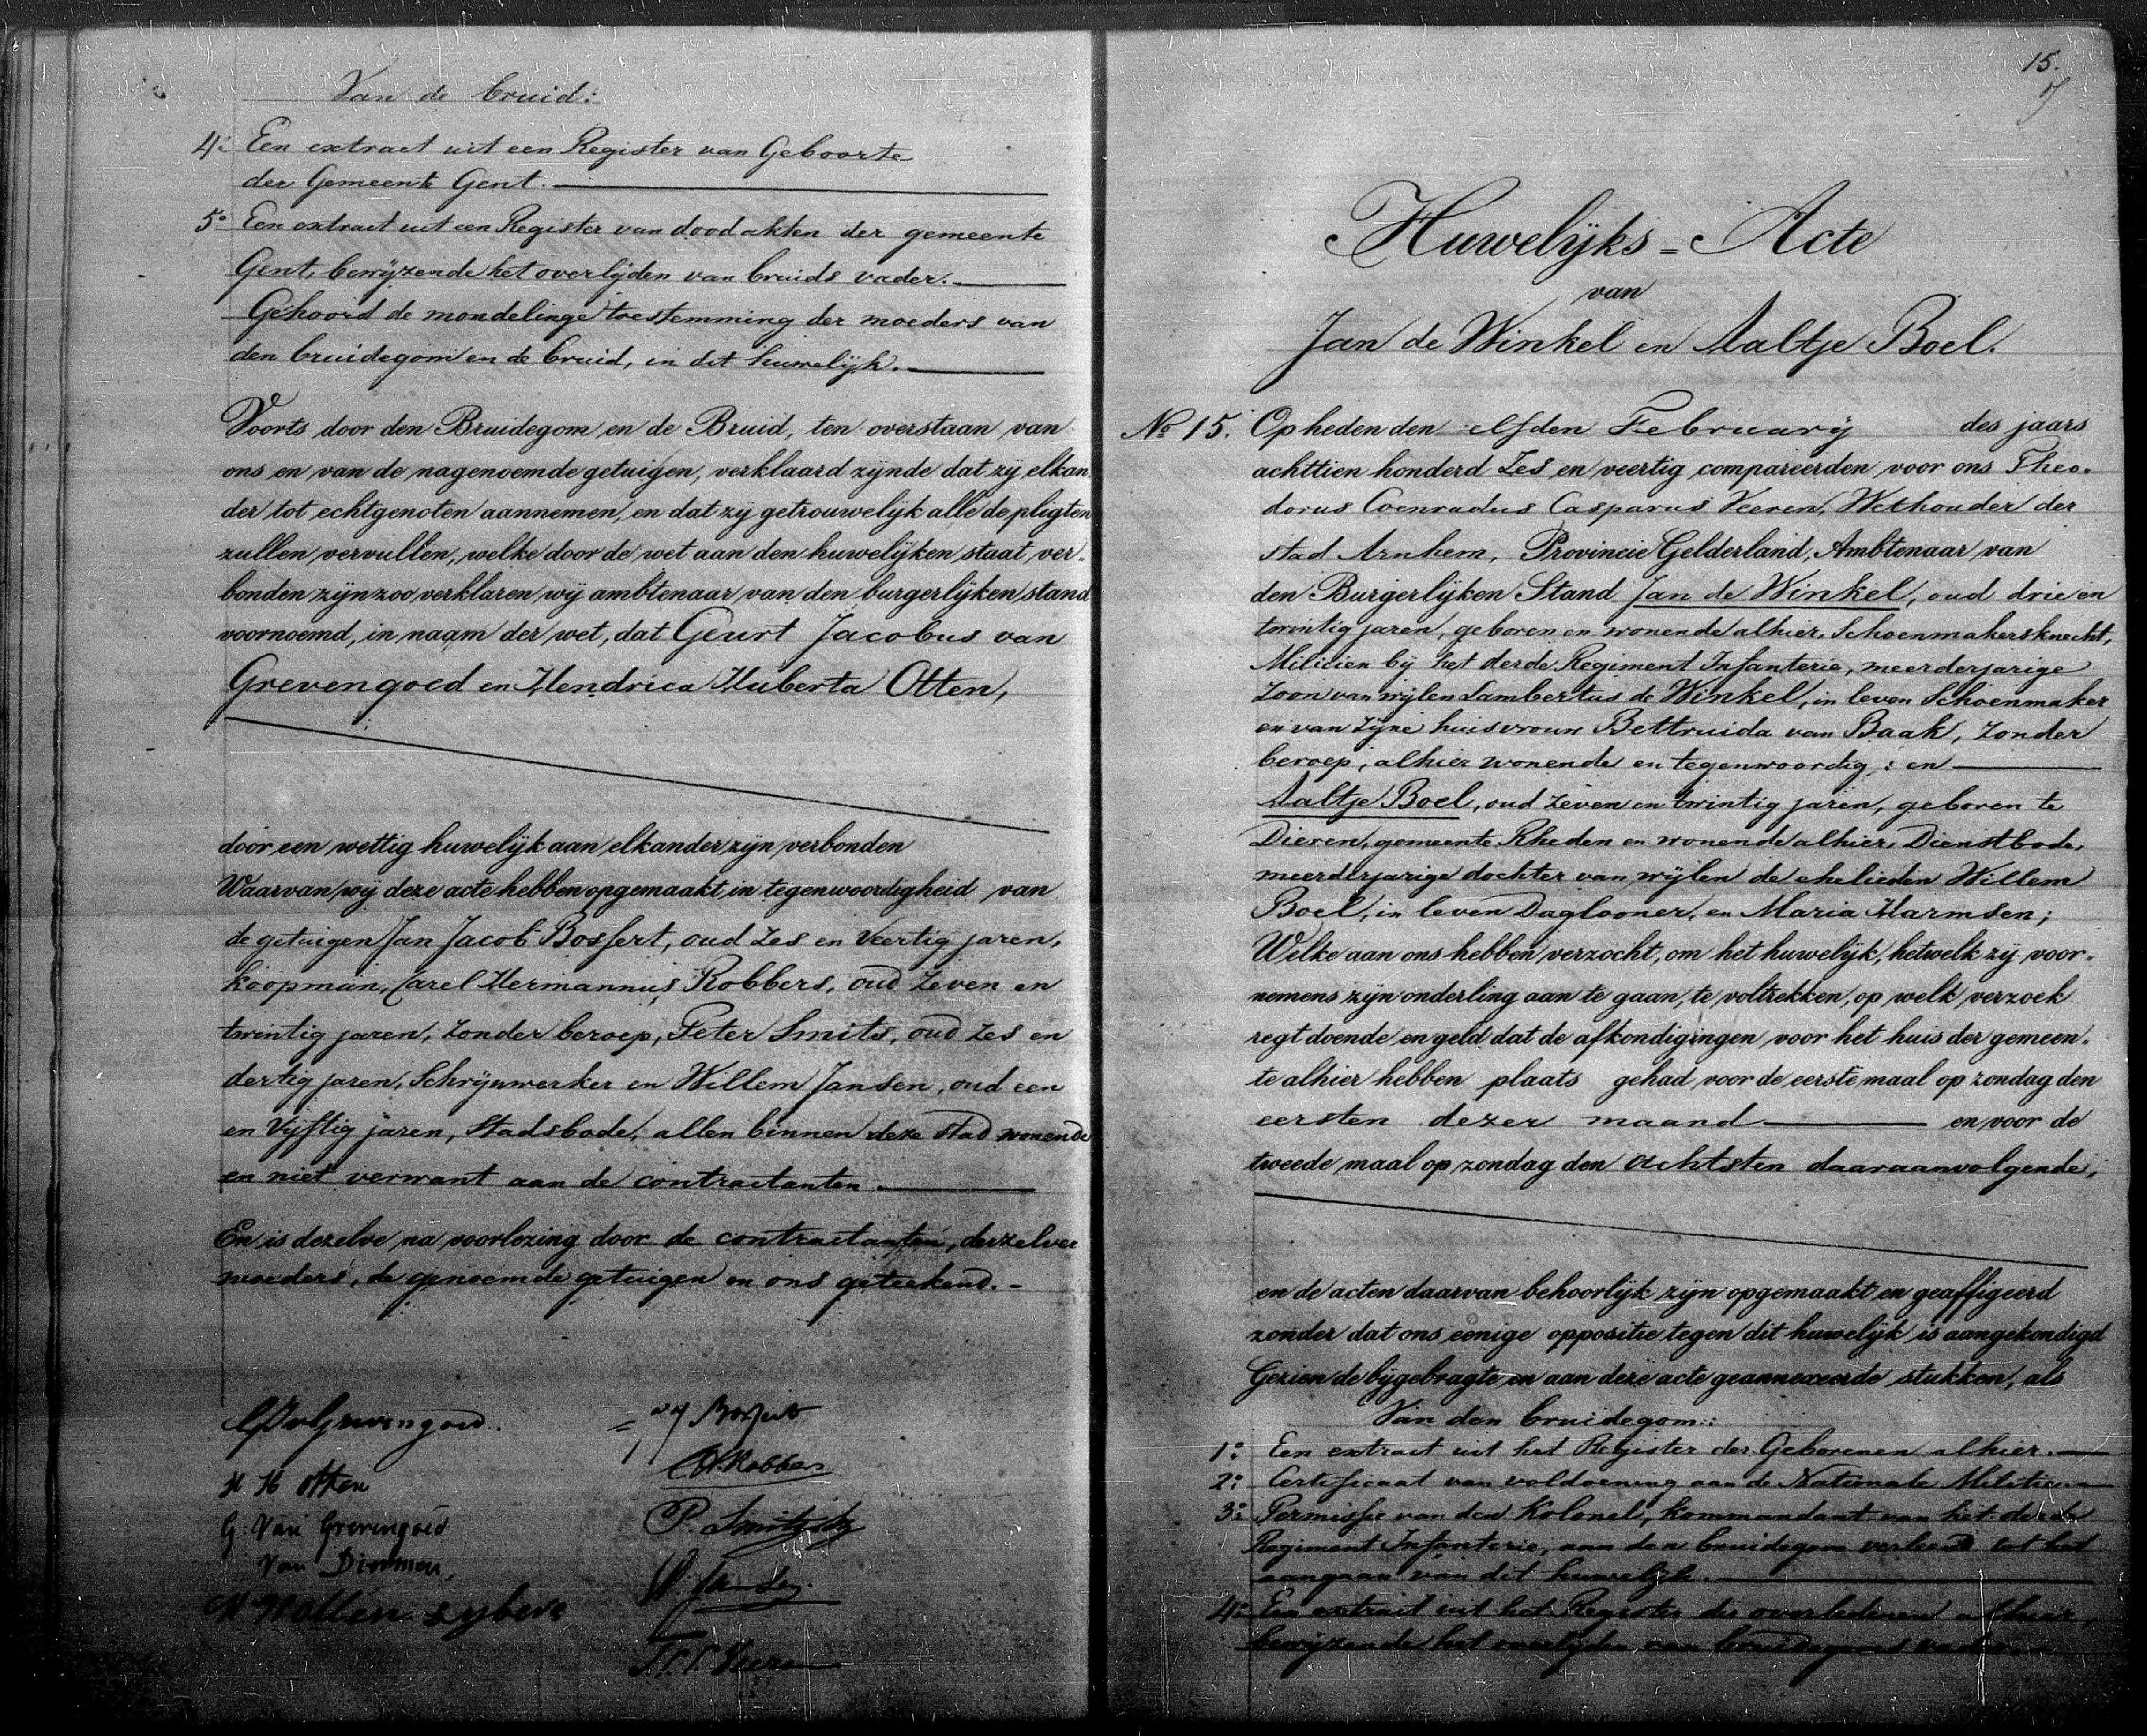 Van de bruid:
4° Een extract uit een Register van Geboorte
der Gemeente Gent.
5° Een extract uit een Register van dood akten der gemeente
Gent, bewijzende het overlijden van bruids vader.
Gehoord de mondelinge toestemming der moeders van
den bruidegom en de bruid, in dit huwelijk.
Voorts door den Bruidegom en de Bruid, ten overstaan van
ons en van de nagenoemde getuigen, verklaard zijnde dat zij elkan
der tot echtgenoten aannemen, en dat zij getrouwelijk alle de pligten
zullen vervullen, welke door de wet aan den huwelijken staat ver-
bonden zijn zoo verklaren wij ambtenaar van den burgerlijken stand
voornoemd, in naam der wet, dat Geurt Jacobus van
Grevengoed en Hendrica Huberta Otten,
door een wettig huwelijk aan elkander zijn verbonden
Waarvan wij deze acte hebben opgemaakt in tegenwoordigheid van
de getuigen Jan Jacob Bosfert, oud Zes en Veertig jaren,
koopman, Carel Hermannus Robbers, oud Zeven en
twintig jaren, Zonder beroep, Peter Smits, oud Zes en
dertig jaren, Schrijnwerker en Willem Jansen, oud een
en Vijftig jaren, Stadsbode, allen binnen deze stad wonende
en niet verwant aan de contractanten.
En is dezelve na voorlezing door de contractanten, derzelver
moeders, de genoemde getuigen en ons geteekend.
H H Otten
G. Van Grevengoed
Van
P. Smits
W. Jansen
15.
Huwelijks=Acte
van
Jan de Winkel en Aaltje Boel.
No 15. Op heden den elfden February des jaars
achttien honderd Zes en veertig compareerden voor ons Theo-
dorus Coenradus Casparus Veeren, Wethouder der
stad Arnhem, Provincie Gelderland, Ambtenaar van
den Burgerlijken Stand Jan de Winkel, oud drie en
twintig jaren, geboren en wonende alhier, Schoenmakersknecht,
Milicien bij het derde Regiment Infanterie, meerderjarige
Zoon van wijlen Lambertus de Winkel, in leven Schoenmaker
en van Zijne huisvrouw Bettruida van Baak, Zonder
beroep, alhier wonende en tegenwoordig; en
Aaltje Boel, oud Zeven en twintig jaren, geboren te
Dieren, gemeente Rheden en wonende alhier, Dienstbode,
meerderjarige dochter van wijlen de ehelieden Willem
Boel, in leven Daglooner, en Maria Harmsen;
Welke aan ons hebben verzocht, om het huwelijk, hetwelk zij voor-
nemens zijn onderling aan te gaan, te voltrekken, op welk verzoek
regt doende en geld dat de afkondigingen voor het huis der gemeen-
te alhier hebben plaats gehad, voor de eerste maal op zondag den
eersten dezer maand en voor de
tweede maal op zondag den achtsten daaraanvolgende,
en de acten daarvan behoorlijk zijn opgemaakt en geaffigeerd
zonder dat ons eenige oppositie tegen dit huwelijk is aangekondigd
Gezien de bijgebragte en aan deze acte geannexeerde stukken, als
Van den bruidegom:
1° Een extract uit het Register der Geborenen alhier.
2° Certificaat van voldoening aan de Nationale Militie.
3° Permissie van den Kolonel, kommandant van het derde
Regiment Infanterie, aan den bruidegom verleend tot het
aangaan van dit huwelijk.
4° Een extract uit het Register der overledenen alhier,
bewijzende het overlijden van bruidegoms vader.